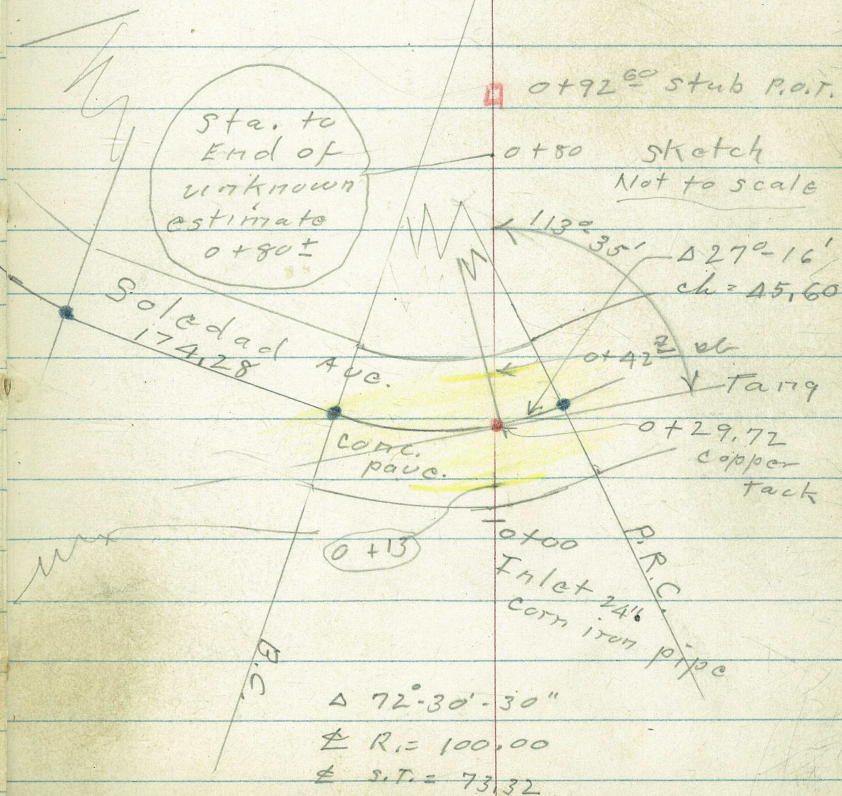 0+92 60 stub P.O.T.
Sta. to
End of
unknown
estimate
0+80±
0+80
Sketch
Not to scale
113°-35'
Δ 27°-16'
ch = 45.60
Soledad
Ave.
174.28
0+42
Tang
0+29.72
copper
tack
conc.
pave.
0+13
0+00
Inlet 24"
corr iron pipe
P.R.C.
B.C.
Δ 72°-30'-30"
℄ R. = 100.00
℄ S.T. = 73.32